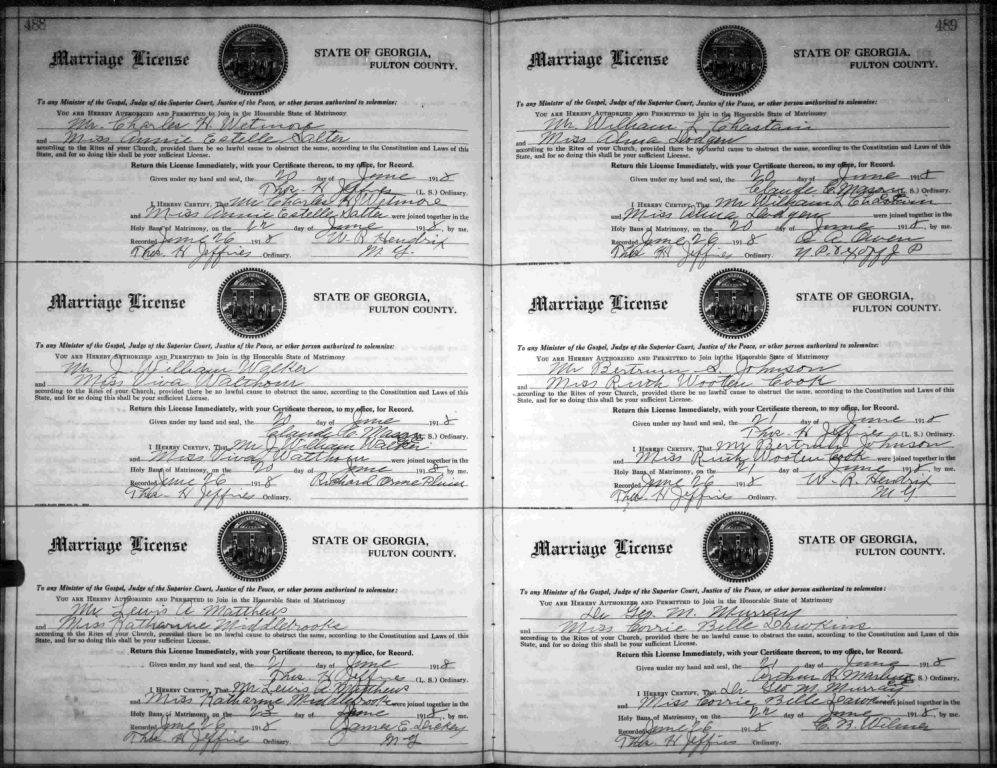 488
Marriage License
STATE OF GEORGIA,
FULTON COUNTY.
To any Minister of the Gospel, Judge of the Superior Court, Justice of the Peace, or other person authorized to solemnize:
YOU ARE HEREBY AUTHORIZED AND PERMITTED to Join in the Honorable State of Matrimony
Mr. Charles H Wetmore
and Miss Annie Estelle Salter
according to the Rites of your Church, provided there be no lawful cause to obstruct the same, according to the Constitution and Laws of this
State, and for so doing this shall be your sufficient License.
Return this License Immediately, with your Certificate thereon, to my office, for Record.
Given under my hand and seal, the 20 day of June 1918
Thos. H Jeffries (L. S.) Ordinary.
I HEREBY CERTIFY, That Mr Charles H Wetmore
and Miss Annie Estelle Salter were joined together in the
Holy Bans of Matrimony, on the 22 day of June 1918, by me.
Recorded June 26 1918 W. R. Hendrix
Thos. H Jeffries Ordinary. M. G.
Marriage License
STATE OF GEORGIA,
FULTON COUNTY.
To any Minister of the Gospel, Judge of the Superior Court, Justice of the Peace, or other person authorized to solemnize:
YOU ARE HEREBY AUTHORIZED AND PERMITTED to Join in the Honorable State of Matrimony
Mr. J. William Walker
and Miss Viva Walthour
according to the Rites of your Church, provided there be no lawful cause to obstruct the same, according to the Constitution and Laws of this
State, and for so doing this shall be your sufficient License.
Return this License Immediately, with your Certificate thereon, to my office, for Record.
Given under my hand and seal, the 20 day of June 1918
Claude C. Mason (L. S.) Ordinary.
I HEREBY CERTIFY, That Mr J William Walker
and Miss Viva Walthour were joined together in the
Holy Bans of Matrimony, on the 20 day of June 1918, by me.
Recorded June 26 1918 Richard Orme Flinn
Thos. H Jeffries Ordinary.
Marriage License
STATE OF GEORGIA,
FULTON COUNTY.
To any Minister of the Gospel, Judge of the Superior Court, Justice of the Peace, or other person authorized to solemnize:
YOU ARE HEREBY AUTHORIZED AND PERMITTED to Join in the Honorable State of Matrimony
Mr Lewis A Matthews
and Miss Katharine Middlebrooks
according to the Rites of your Church, provided there be no lawful cause to obstruct the same, according to the Constitution and Laws of this
State, and for so doing this shall be your sufficient License.
Return this License Immediately, with your Certificate thereon, to my office, for Record.
Given under my hand and seal, the 21 day of June 1918
Thos. H Jeffries (L. S.) Ordinary.
I HEREBY CERTIFY, That Mr Lewis A Matthews
and Miss Katharine Middlebrook were joined together in the
Holy Bans of Matrimony, on the day of June 1918, by me.
Recorded June 26 1918 James E. Dickey
Thos H Jeffries Ordinary. M G
489
Marriage License
STATE OF GEORGIA.
FULTON COUNTY.
To any Minister of the Gospel, Judge of the Superior Court, Justice of the Peace, or other person authorized to solemnize:
YOU ARE HEREBY AUTHORIZED AND PERMITTED to Join in the Honorable State of Matrimony
Mr William L Chastain
and Miss Alma Lodgen
according to the Rites of your Church, provided there be no lawful cause to obstruct the same, according to the Constitution and Laws of this
State, and for so doing this shall be your sufficient License.
Return this License Immediately, with your Certificate thereon, to my office, for Record.
Given under my hand and seal, the 20 day of June 1918
Claude C. Mason (L. S.) Ordinary.
I HEREBY CERTIFY, That Mr William L Chastain
and Miss Alma Lodgen were joined together in the
Holy Bans of Matrimony, on the 20 day of June 1918, by me.
Recorded June 26 1918 Owen
Thos H Jeffries Ordinary. N P. & Ex off J P
Marriage License
STATE OF GEORGIA,
FULTON COUNTY.
To any Minister of the Gospel, Judge of the Superior Court, Justice of the Peace, or other person authorized to solemnize:
YOU ARE HEREBY AUTHORIZED AND PERMITTED to Join in the Honorable State of Matrimony
Mr Bertrum S. Johnson
and Miss Ruth Wooten Cook
according to the Rites of your Church, provided there be no lawful cause to obstruct the same, according to the Constitution and Laws of this
State, and for so doing this shall be your sufficient License.
Return this License Immediately, with your Certificate thereon, to my office, for Record.
Given under my hand and seal, the 21 day of June 1918
Thos. H Jeffries (L. S.) Ordinary.
I HEREBY CERTIFY, That Mr Bertrum S Johnson
and Miss Ruth Wooten Cook were joined together in the
Holy Bans of Matrimony, on the 21 day of June 1918, by me.
Recorded June 26 1918 W. R. Hendrix
Thos. H Jeffries Ordinary. M G
Marriage License
STATE OF GEORGIA,
FULTON COUNTY.
To any Minister of the Gospel, Judge of the Superior Court, Justice of the Peace, or other person authorized to solemnize:
YOU ARE HEREBY AUTHORIZED AND PERMITTED to Join in the Honorable State of Matrimony
Dr Geo. M. Murray
and Miss Corrie Bille Dawkins
according to the Rites of your Church, provided there be no lawful cause to obstruct the same, according to the Constitution and Laws of this
State, and for so doing this shall be your sufficient License.
Return this License Immediately, with your Certificate thereon, to my office, for Record.
Given under my hand and seal, the 21 day of June 1918
Arthur R. (L. S.) Ordinary.
I HEREBY CERTIFY, That Dr Geo M Murray
and Miss Corrie Bille Dawkins were joined together in the
Holy Bans of Matrimony, on the 22 day of June 1918, by me.
Recorded June 26 1918 C. B. Wilmer
Thos H Jeffries Ordinary.